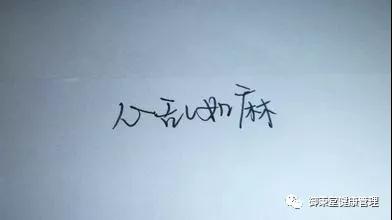 心乱如麻
御秉堂健康管理